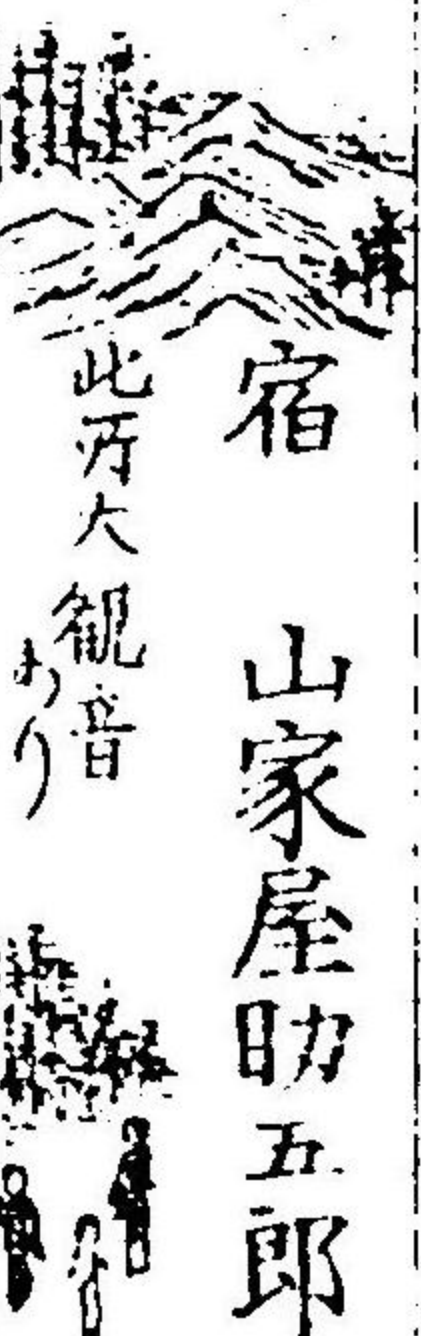 宿 山家屋助五郎
此所大観音
あり